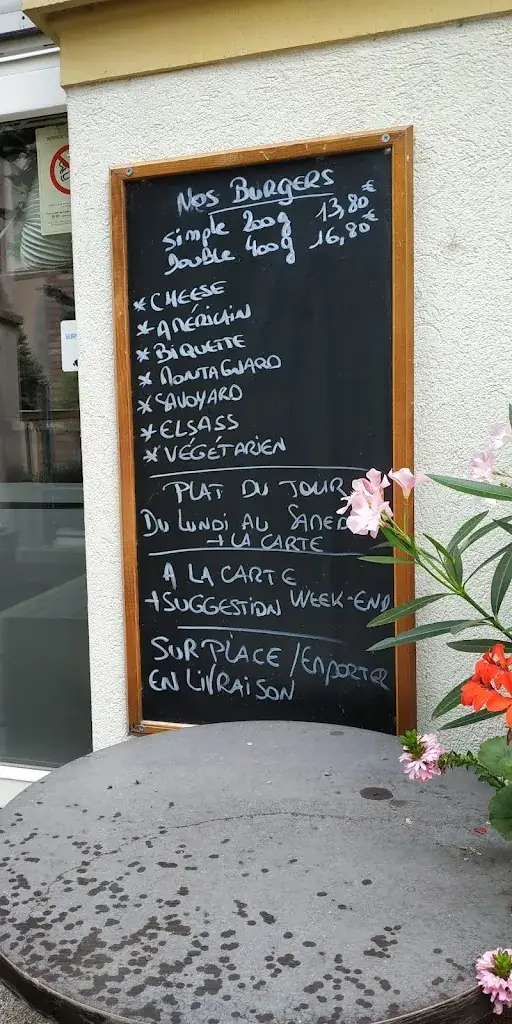 Nos BURGERS
Simple 200g 13,80€
Double 400g 16,80€
* CHEESE
* AMÉRICAIN
* BIQUETTE
* MONTAGNARD
* SAVOYARD
* ELSASS
* VÉGÉTARIEN
PLAT DU JOUR
DU LUNDI AU SAMED
+ LA CARTE
A LA CARTE
+ SUGGESTION WEEK-END
SUR PLACE / EMPORTER
EN LIVRAISON